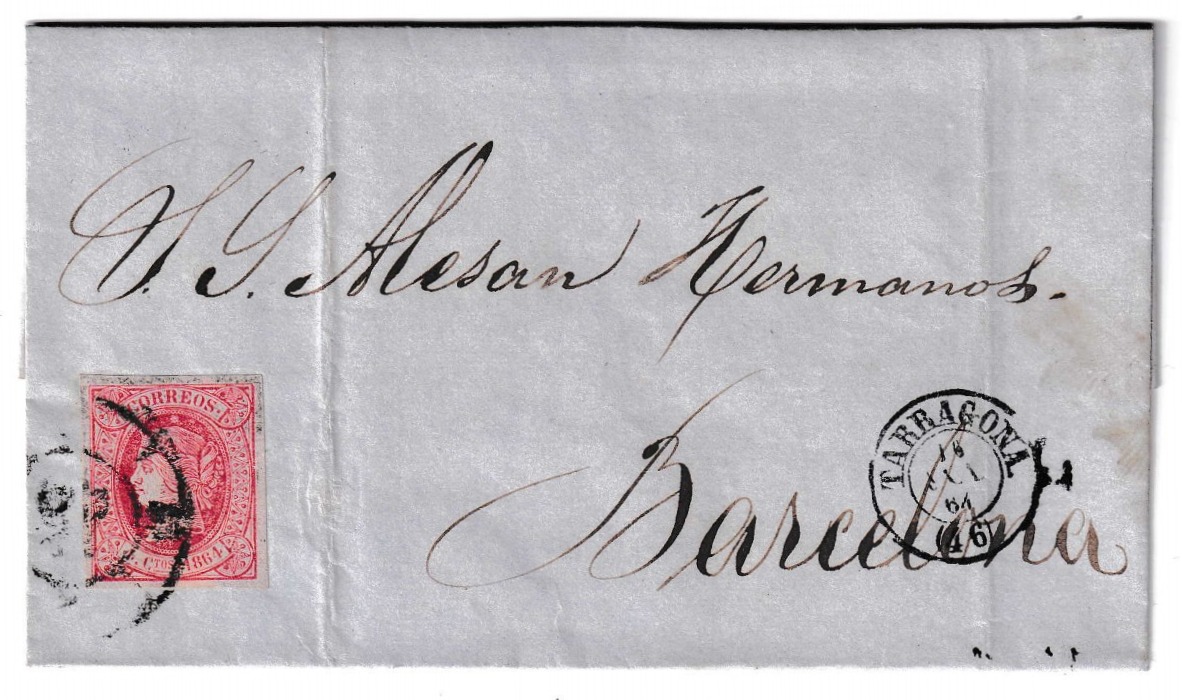 S. S. Alesan Hermanos.
Barcelona
CORREOS
CTOS 1864
TARRAGONA
64
(46)